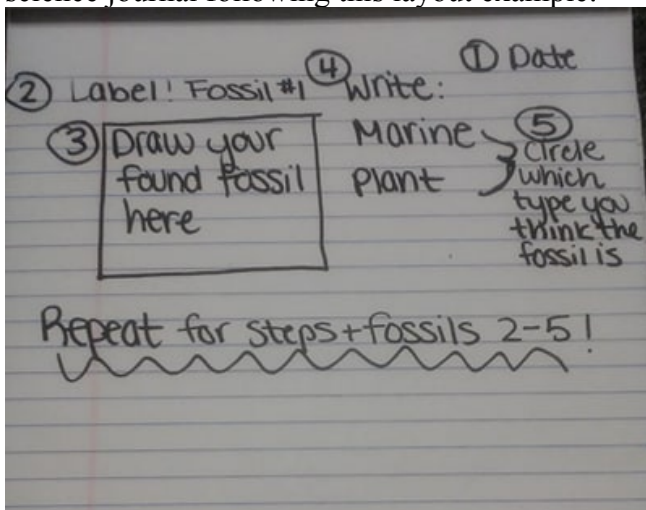 science journal following this layout example:
① Date
② Label! Fossil #1
④ Write:
③ Draw your
found fossil
here
Marine
Plant
⑤
Circle
which
type you
think the
fossil is
Repeat for steps+fossils 2-5!